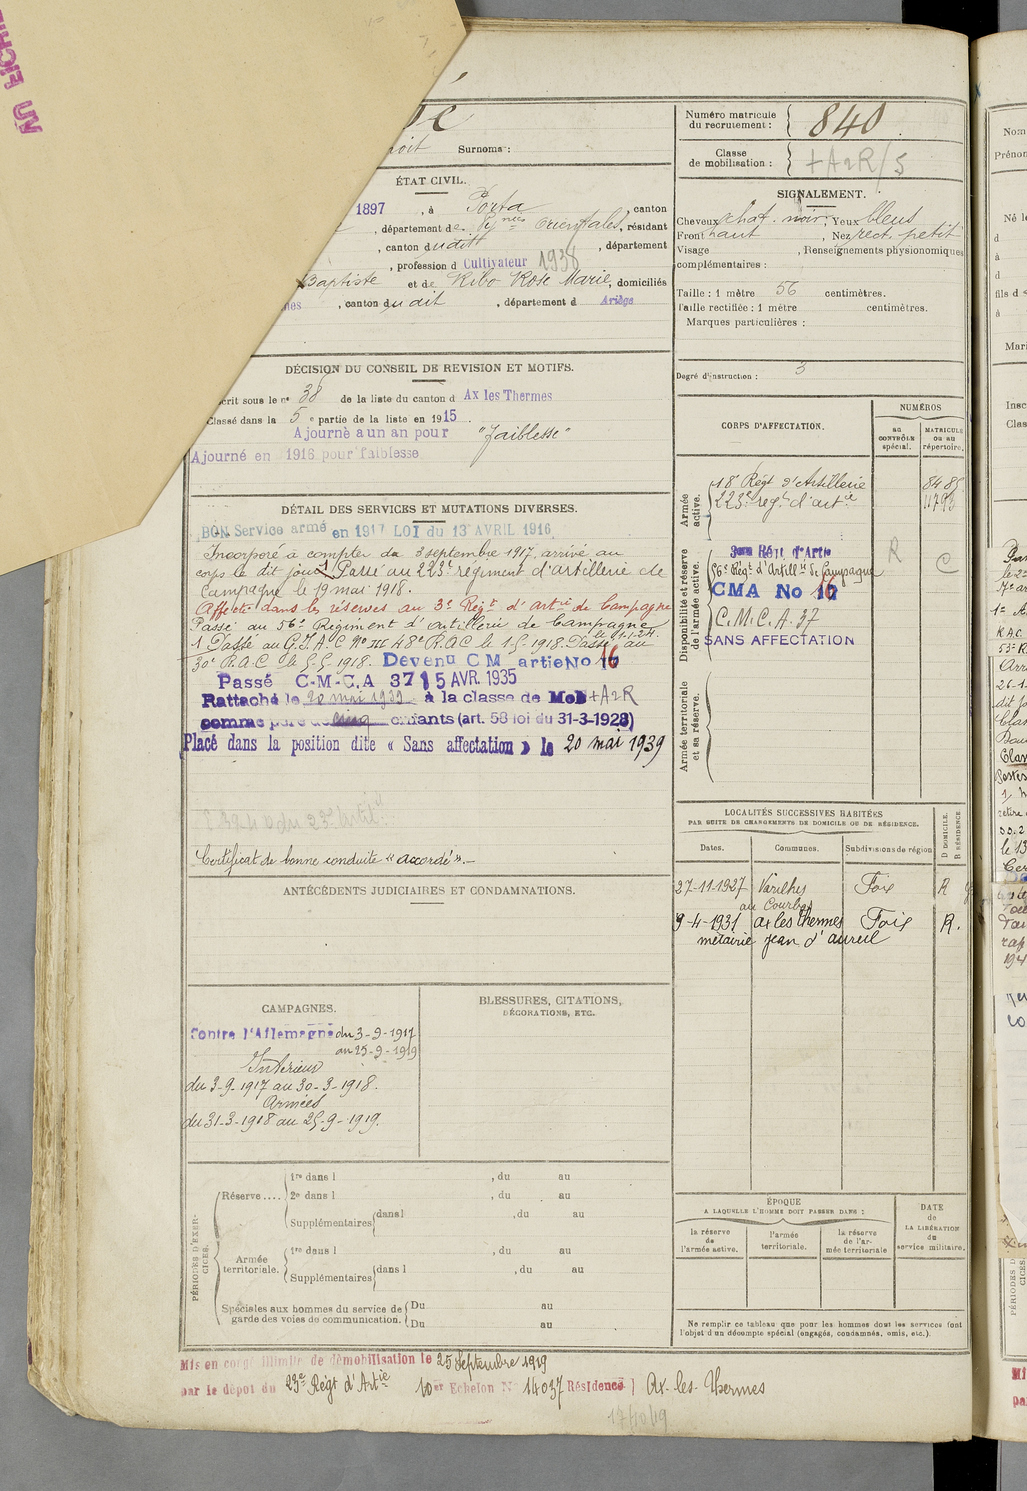 Surnoms :
ÉTAT CIVIL.
1897 , à Porta , canton
, département de Pynées Orientales, résidant
, canton dudit , département
, profession d Cultivateur 1938
Baptiste et de Ribo Rose Marie, domiciliés
, canton dudit , département d Ariège
DÉCISION DU CONSEIL DE REVISION ET MOTIFS.
crit sous le n° 38 de la liste du canton d Ax les Thermes
Classé dans la 5e partie de la liste en 1915.
Ajourné a un an pour "faiblesse"
Ajourné en 1916 pour faiblesse
DÉTAIL DES SERVICES ET MUTATIONS DIVERSES.
BON Service armé en 1917 LOI du 13 AVRIL 1916
Incorporé à compter du 3 septembre 1917, arrivé au
corps le dit jour. Passé au 223e régiment d'artillerie de
Campagne le 19 mai 1918.
Affecté dans les réserves au 3e Régt d'artie de Campagne
Passé au 56e Régiment d'Artillerie de Campagne
le 1-1-24.
1 Passé au G.I.A.C No III 48e R.A.C le 1-5-1918. Passé au
30e R.A.C le 5-5-1918. Devenu C M artie No 16
Passé C-M-C.A 37 15 AVR. 1935
Rattaché le 20 mai 1939 à la classe de MoB + A2R
comme père de cinq enfants (art. 58 loi du 31-3-1928)
Placé dans la position dite « Sans affectation » le 20 mai 1939
Certificat de bonne conduite "accordé".-
ANTÉCÉDENTS JUDICIAIRES ET CONDAMNATIONS.
CAMPAGNES.
Contre l'Allemagne du 3-9-1917
au 25-9-1919
Intérieur
du 3-9-1917 au 30-3-1918.
Armées
du 31-3-1918 au 25-9-1919.
BLESSURES, CITATIONS,
DÉCORATIONS, ETC.
PÉRIODES D'EXERCICES.
Réserve....
1re dans l , du au
2e dans l , du au
Supplémentaires dans l , du au
Armée
territoriale.
1re dans l , du au
Supplémentaires dans l , du au
Spéciales aux hommes du service de
garde des voies de communication.
Du au
Du au
Mis en congé illimité de démobilisation le 25 Septembre 1919
par le dépot du 23e Régt d'Artie 10er Echelon N° 14037 Résidence ) Ax-les-Thermes
17/10/19
Numéro matricule
du recrutement : 840.
Classe
de mobilisation : + A2R/5
SIGNALEMENT.
Cheveux chat. noir, Yeux bleus
Front haut , Nez rect. petit
Visage , Renseignements physionomiques
complémentaires :
Taille : 1 mètre 56 centimètres.
Taille rectifiée : 1 mètre centimètres.
Marques particulières :
Degré d'instruction : 3
CORPS D'AFFECTATION.
NUMÉROS
au
CONTRÔLE
spécial.
MATRICULE
ou au
répertoire.
Armée
active.
18e Régt d'Artillerie 8485
223e régt d'artie 11793
Disponibilité et réserve
de l'armée active.
3eme Régt d'Artie
56e Régt d'Artillie de Campagne
R C
CMA No 16
C.M.C.A.37
SANS AFFECTATION
Armée territoriale
et sa réserve.
LOCALITÉS SUCCESSIVES HABITÉES
PAR SUITE DE CHANGEMENTS DE DOMICILE OU DE RÉSIDENCE.
Dates. Communes. Subdivisions de région D DOMICILE. R RÉSIDENCE
27-11-1927 Varilhes Foix R
au Courbas
9-4-1931 ax les thermes Foix R.
métairie jean d'aureil
ÉPOQUE
A LAQUELLE L'HOMME DOIT PASSER DANS :
la réserve
de
l'armée active.
l'armée
territoriale.
la réserve
de l'ar-
mée territoriale
DATE
de
LA LIBÉRATION
du
service militaire.
Ne remplir ce tableau que pour les hommes dont les services font
l'objet d'un décompte spécial (engagés, condamnés, omis, etc.).